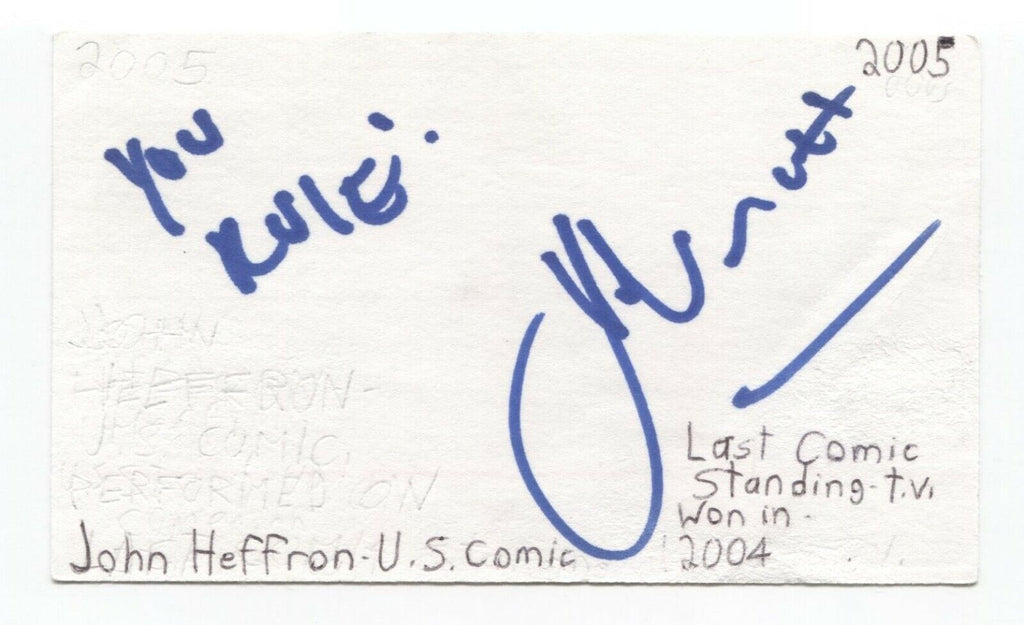 2005
2005
You
RULE.
Last Comic
Standing-t.v.
Won in-
2004
John Heffron-U.S. Comic
JOHN
HEFFRON-
U.S COMIC,
PERFORMED ON